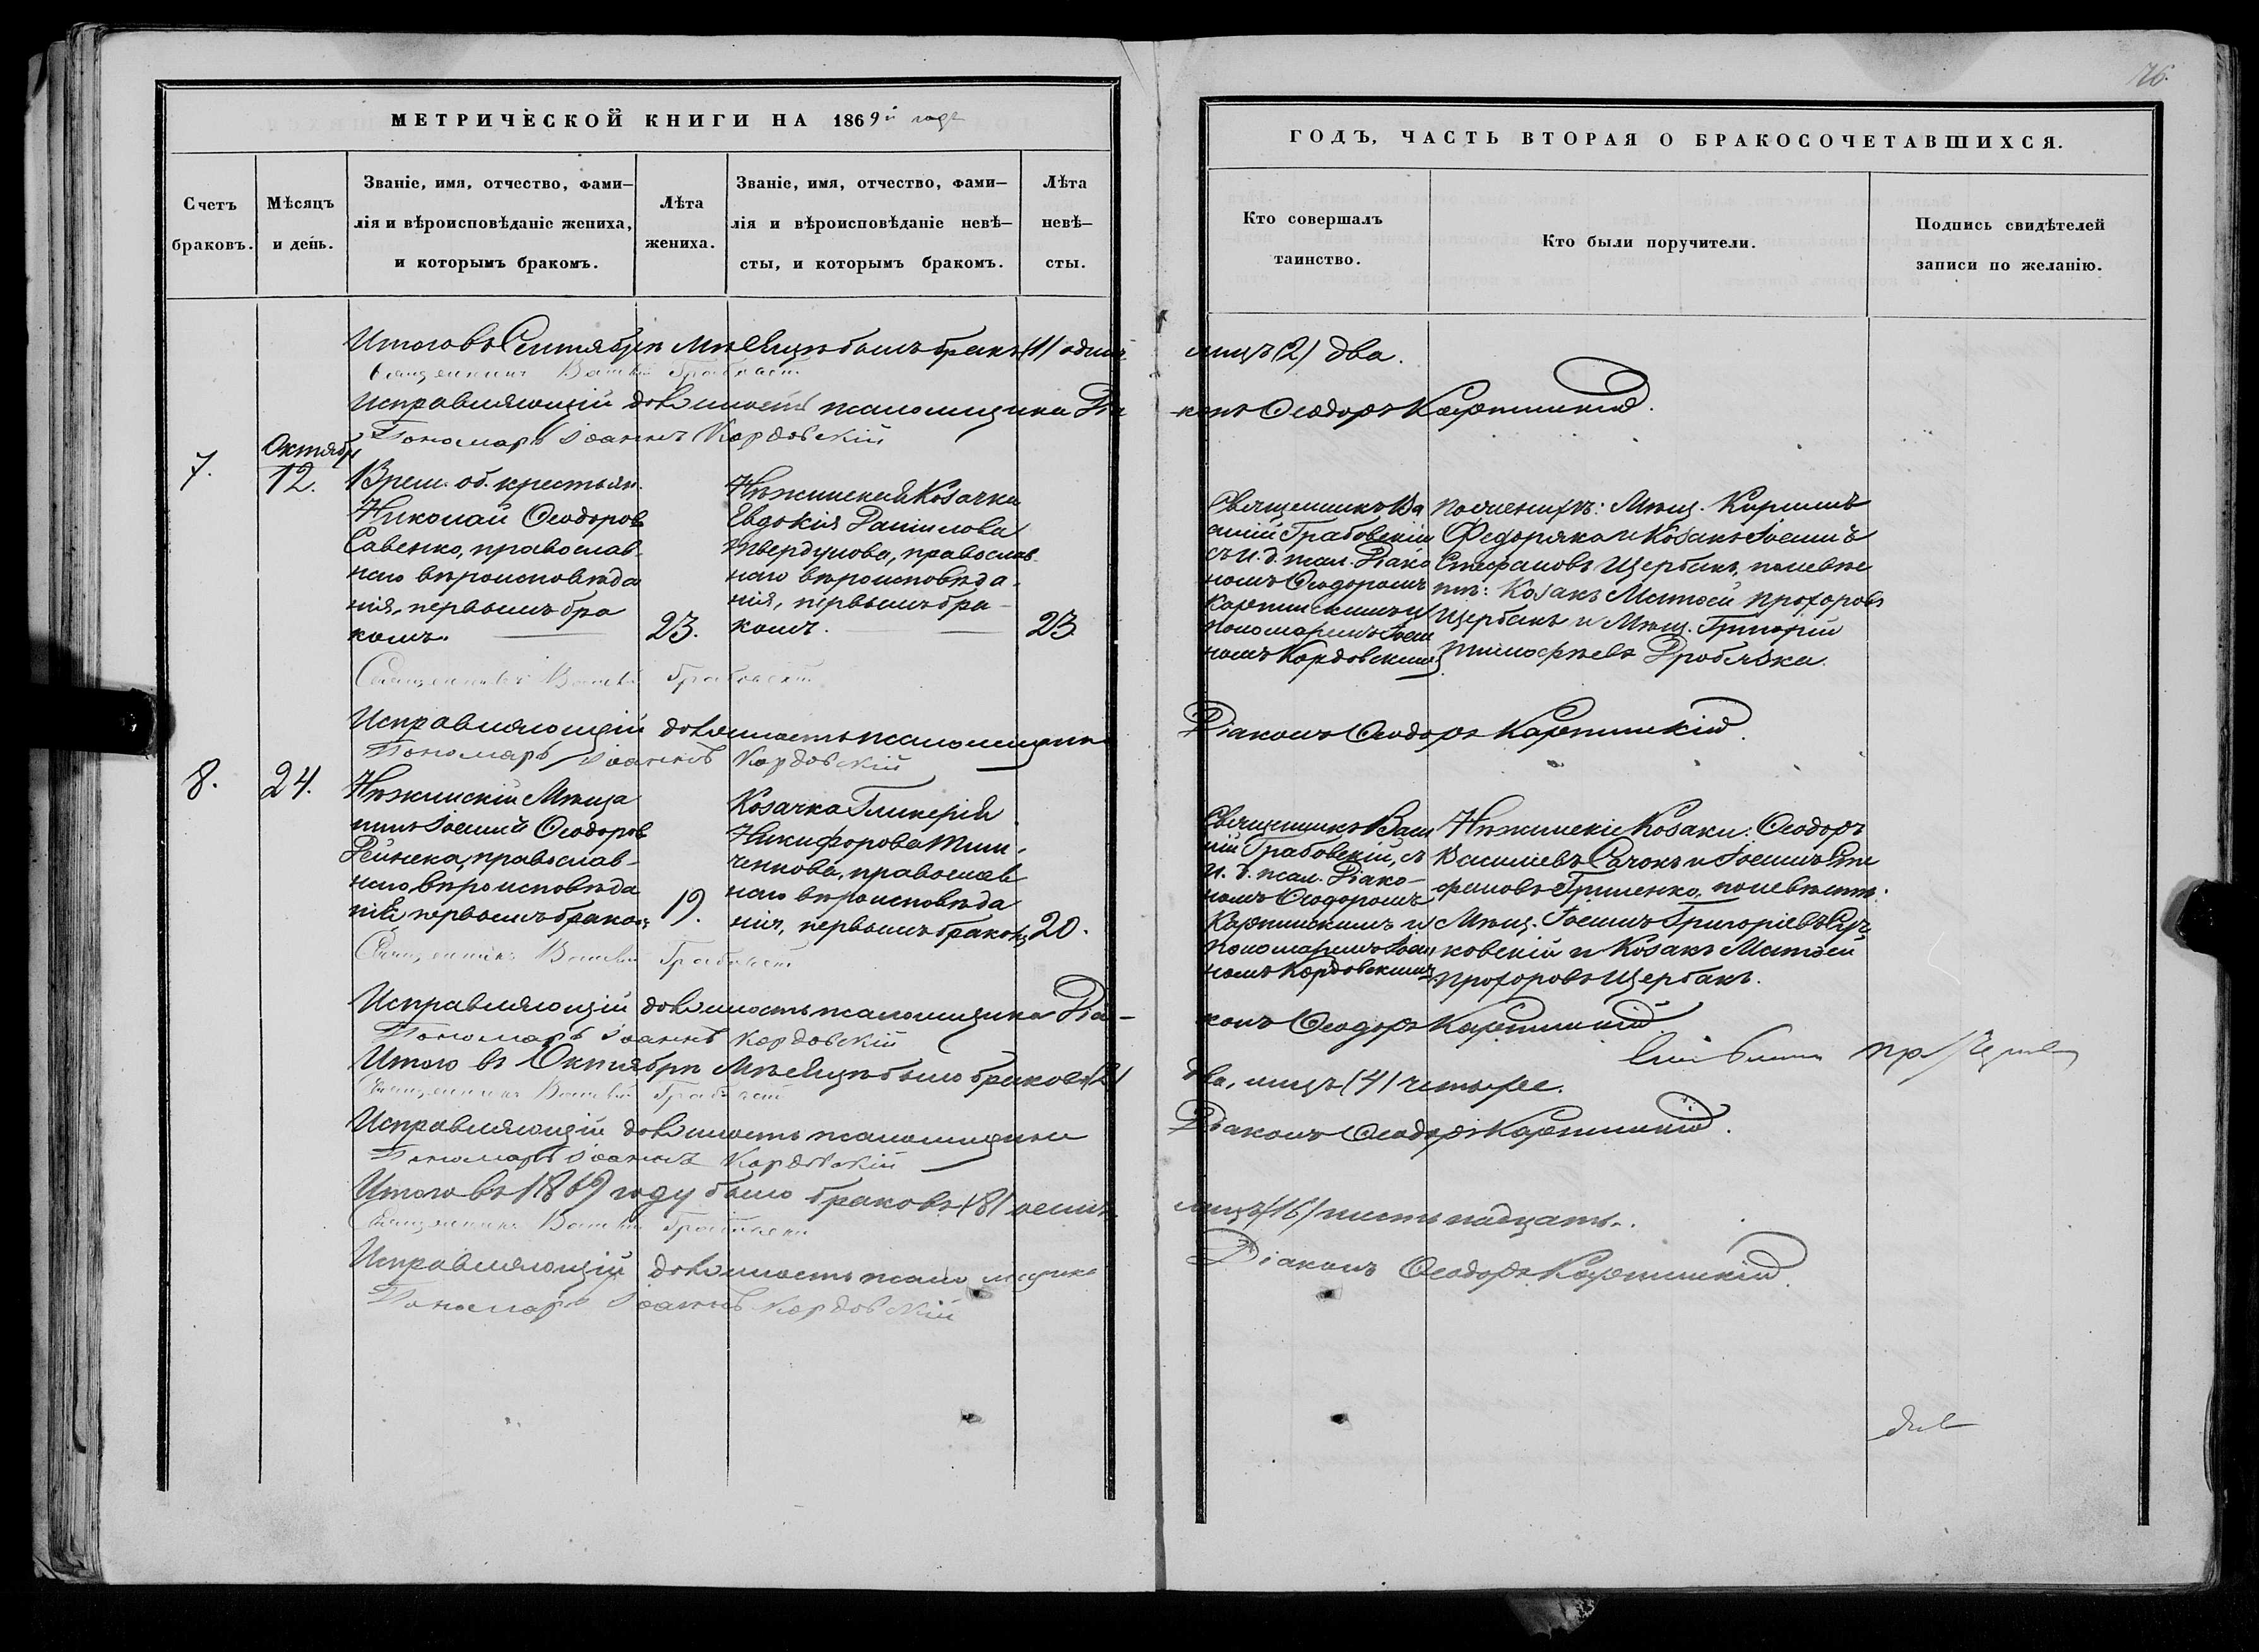 176
МЕТРИЧЕСКОЙ КНИГИ НА 1869й годъ
Счетъ браковъ.
Мѣсяцъ и день.
Званіе, имя, отчество, фами-
лія и вѣроисповѣданіе жениха,
и которымъ бракомъ.
Лѣта
жениха.
Званіе, имя, отчество, фами-
лія и вѣроисповѣданіе невѣ-
сты, и которымъ бракомъ.
Лѣта
невѣ-
сты.
ГОДЪ, ЧАСТЬ ВТОРАЯ О БРАКОСОЧЕТАВШИХСЯ.
Кто совершалъ
таинство.
Кто были поручители.
Подпись свидѣтелей
записи по желанію.
Итого въ Сентябрѣ мѣсяцѣ былъ бракъ (1) одинъ
лицъ (2) два.
Священникъ Василій Грабовскій
Исправляющій должность псаломщика Діа
конъ Ѳеодоръ
Пономарь Іоаннъ Кордовскій
7.
Октябрь
12.
Врем. об. крестьян.
Николай Ѳеодоровъ
Савенко, православ
наго вѣроисповѣда
нія, первымъ бра
комъ.
23.
Нѣжинская Козачка
Евдокія Даніилова
Твердунова, православ-
наго вѣроисповѣда-
нія, первымъ бра-
комъ.
23
Священникъ Ва
силій Грабовскій
съ и. д. псал. Діако
номъ Ѳеодоромъ
и
пономаремъ Іоан
номъ Кордовскимъ
по женихѣ: Мѣщ. Кириллъ
Федоряка и Козакъ Іоаннъ
Стефановъ Щербакъ, по невѣс
тѣ: Козакъ Матѳей Прохоровъ
Щербакъ и Мѣщ. Григорій
Тимофѣевъ Дробязка.
Священникъ Василій Грабовскій
Исправляющій должность псаломщика
Діаконъ Ѳеодоръ
Пономарь Іоаннъ Кордовскій
8.
24.
Нѣжинскій Мѣща
нинъ Іоаннъ Ѳеодоровъ
православ-
наго вѣроисповѣда
нія, первымъ бракомъ
19.
Козачка Гликерія
Никифорова Тим-
ченкова, православ
наго вѣроисповѣда
нія, первымъ бракомъ
20.
Священникъ Васи
лій Грабовскій, съ
и. д. псал. Діако-
номъ Ѳеодоромъ
и
пономаремъ Іоан
номъ Кордовскимъ
Нѣжинскіе Козаки: Ѳеодоръ
Васильевъ и Іоаннъ Сте
фановъ Гриценко, по невѣстѣ:
Мѣщ. Іоаннъ Григорьевъ
ковскій и Козакъ Матѳей
Прохоровъ Щербакъ.
Священникъ Василій Грабовскій
Исправляющій должность псаломщика Діа-
конъ Ѳеодоръ
Пономарь Іоаннъ Кордовскій
Итого въ Октябрѣ мѣсяцѣ было браковъ (2)
два, лицъ (4) четыре.
Священникъ Василій Грабовскій
Исправляющій должность псаломщика
Діаконъ Ѳеодоръ
Пономарь Іоаннъ Кордовскій
Итого въ 1869 году было браковъ (8) восемь
лицъ (16) шестьнадцать.
Священникъ Василій Грабовскій
Исправляющій должность псаломщика
Діаконъ Ѳеодоръ
Пономарь Іоаннъ Кордовскій